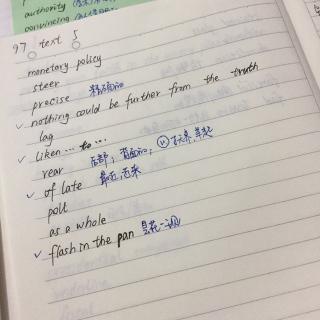 authority
convincing
97 text 5
monetary policy
steer
precise 精确的
✓ nothing could be further from the truth
lag
✓ liken ... to ...
rear 后部，背面的，(v) 饲养，养起
✓ of late 最近，近来
poll
as a whole
✓ flash in the pan 昙花一现